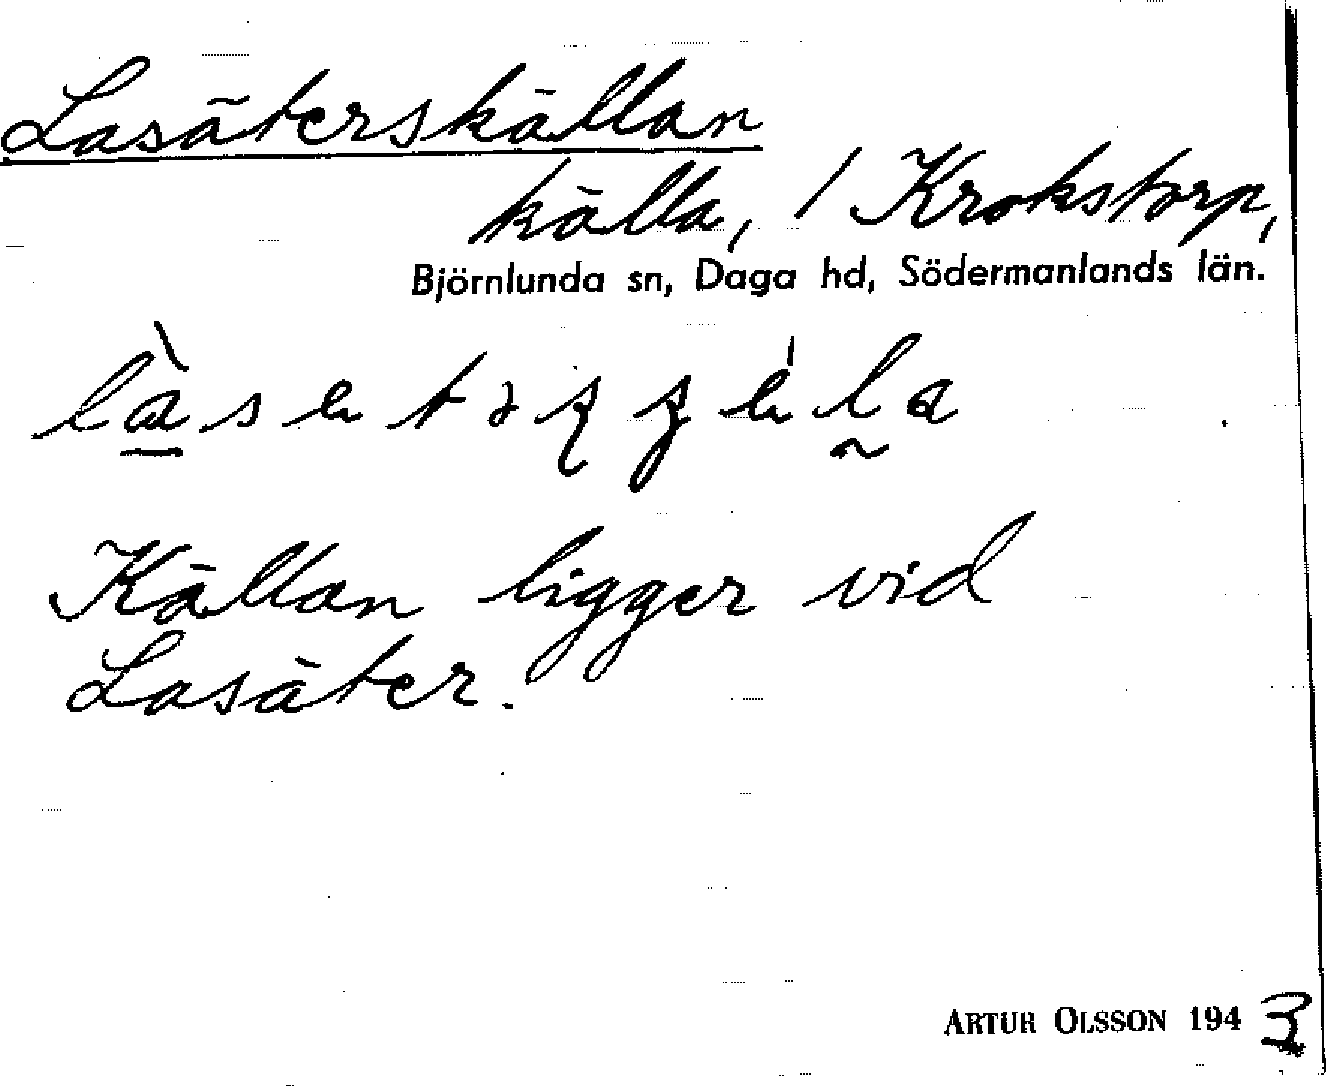 Lasäterskällan
källa, / Krokstorp,
Björnlunda sn, Daga hd, Södermanlands län.
Källan ligger vid
Lasäter.
ARTUR OLSSON 1943